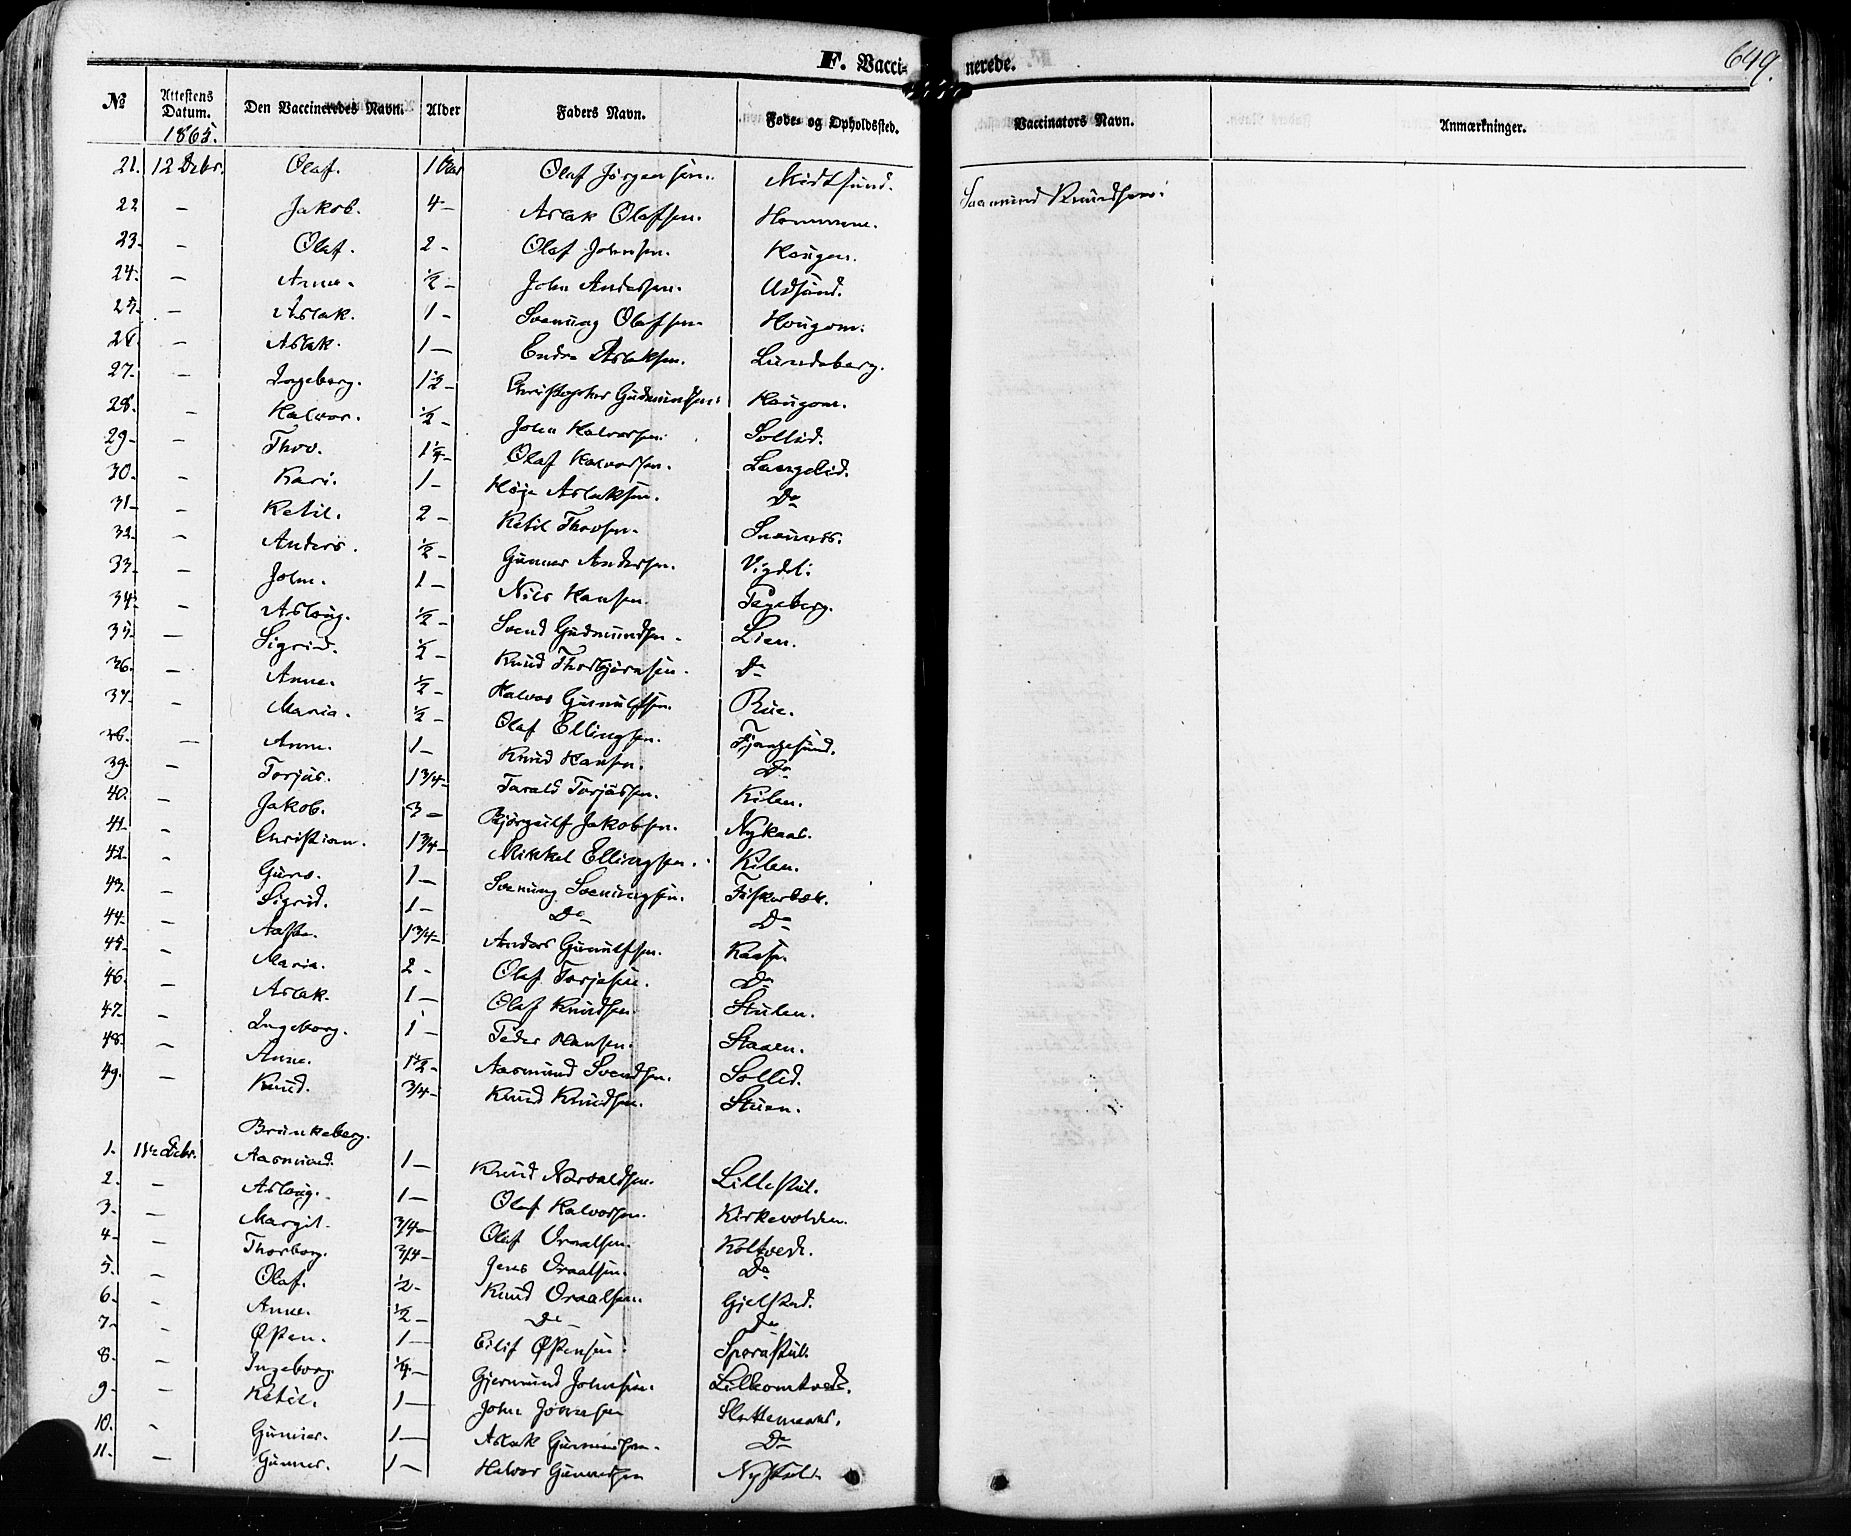 F. Vaccinerede.
649.
№ Attestens Datum. 1865. Den Vaccineredes Navn. Alder Faders Navn. Føde- og Opholdssted. Vaccinators Navn. Anmærkninger.
21. 12 Debr. Olaf. 1 Olaf Jörgensen. Midtsund. Knudsen
22 — Jakob. 4 — Aslak Olafsen. Hommme.
23. — Olaf. 2 - Olaf Johnsen. Hougen.
24. — Anne. ½ — John Andersen. Udsund.
25. — Aslak. 1 - Svenung Olafsen Hougom.
26. — Aslak. 1 — Endre Aslaksen. Lundeberg.
27. — Ingeborg. 1½ - Christopher Gudmundsen. Hougom.
28. — Halvor. ½ - John Halvorsen. Sollid.
29 — Thov. 1¼ - Olaf Halvorsen. Langelid.
30. — Kari. 1 - Höje Aslaksen. Do
31 — Ketil. 2 - Ketil Thovsen.
32. — Anders. ½ - Gunner Andersen. Vigdel.
33 — John. 1 — Nils Hansen. Tageberg.
34. — Aslaug. ½ - Svend Gudmundsen. Lien.
35 — Sigrid. ½ - Knud Thorbjörnsen. Do
36. — Anne. ½ - Halvor Gunulfsen. Rue.
37. — Maria. ½ - Olaf Ellingsen. Fjaagesund.
38. — Anne. 1 - Knud Hansen. Do
39. — Torjus. 1¾ - Tarald Torjussen. Kilen.
40. — Jakob. 3 - Björgulf Jakobsen. Nykaas.
41. — Christian. 1¾ - Mikkel Ellingsen. Kilen.
42. — Guro. 1 — Svenung Svenungsen. Fiskerbæk.
43. — Sigrid. 1 - Do Do
44 — Aaste. 1¾ - Anders Gunulfsen. Kaasa
45 — Maria. 2 - Olaf Torjesen. Do
46. — Aslak. 1 — Olaf Knudsen Stulen.
47. — Ingeborg. 1 — Peder Hansen. Staaen.
48. — Anne. 1½ - Aasmund Svendsen. Sollid.
49. — Knud. ¾ - Knud Knudsen. Stuen.
Brunkeberg.
1. 11te Debr. Aasmund. 1 — Knud Lillestul.
2. — Aslaug. 1 — Olaf Halvorsen. Kirkevolden.
3. — Margit. ¾ — Olaf Vraalsen. Koltvedt.
4 — Thorborg. ¾ — Jens Vraalsen. Do
5. — Olaf. ½ - Knud Vraalsen. Gjelstad.
6 — Anne. ½ — Do Do
7. — Østen. 1 — Eilif Østensen Sperastul.
8. — Ingeborg. ¼ — Gjermund Johnsen. Lilleomtvedt.
9 — Ketil. 1 — John Slattemoen.
10. — Gunner. 1 — Aslak Gunnersen. Do
11. — Gunner. 1 — Halvor Gunnersen Nystul.